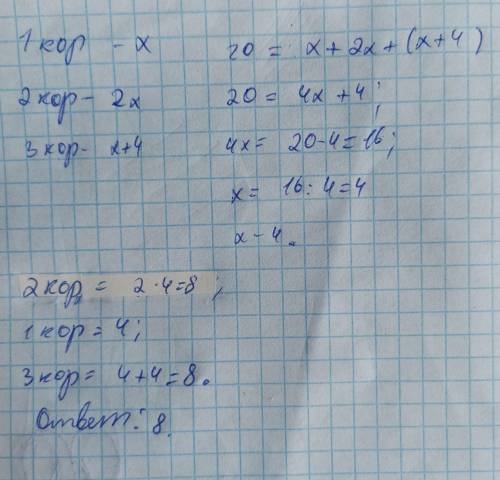 1 кор - x
20 = x + 2x + (x+4)
2 кор - 2x
20 = 4x + 4;
3 кор - x+4
4x = 20-4=16;
x = 16:4=4
x - 4.
2 кор = 2·4=8;
1 кор = 4;
3 кор = 4+4=8.
Ответ: 8.